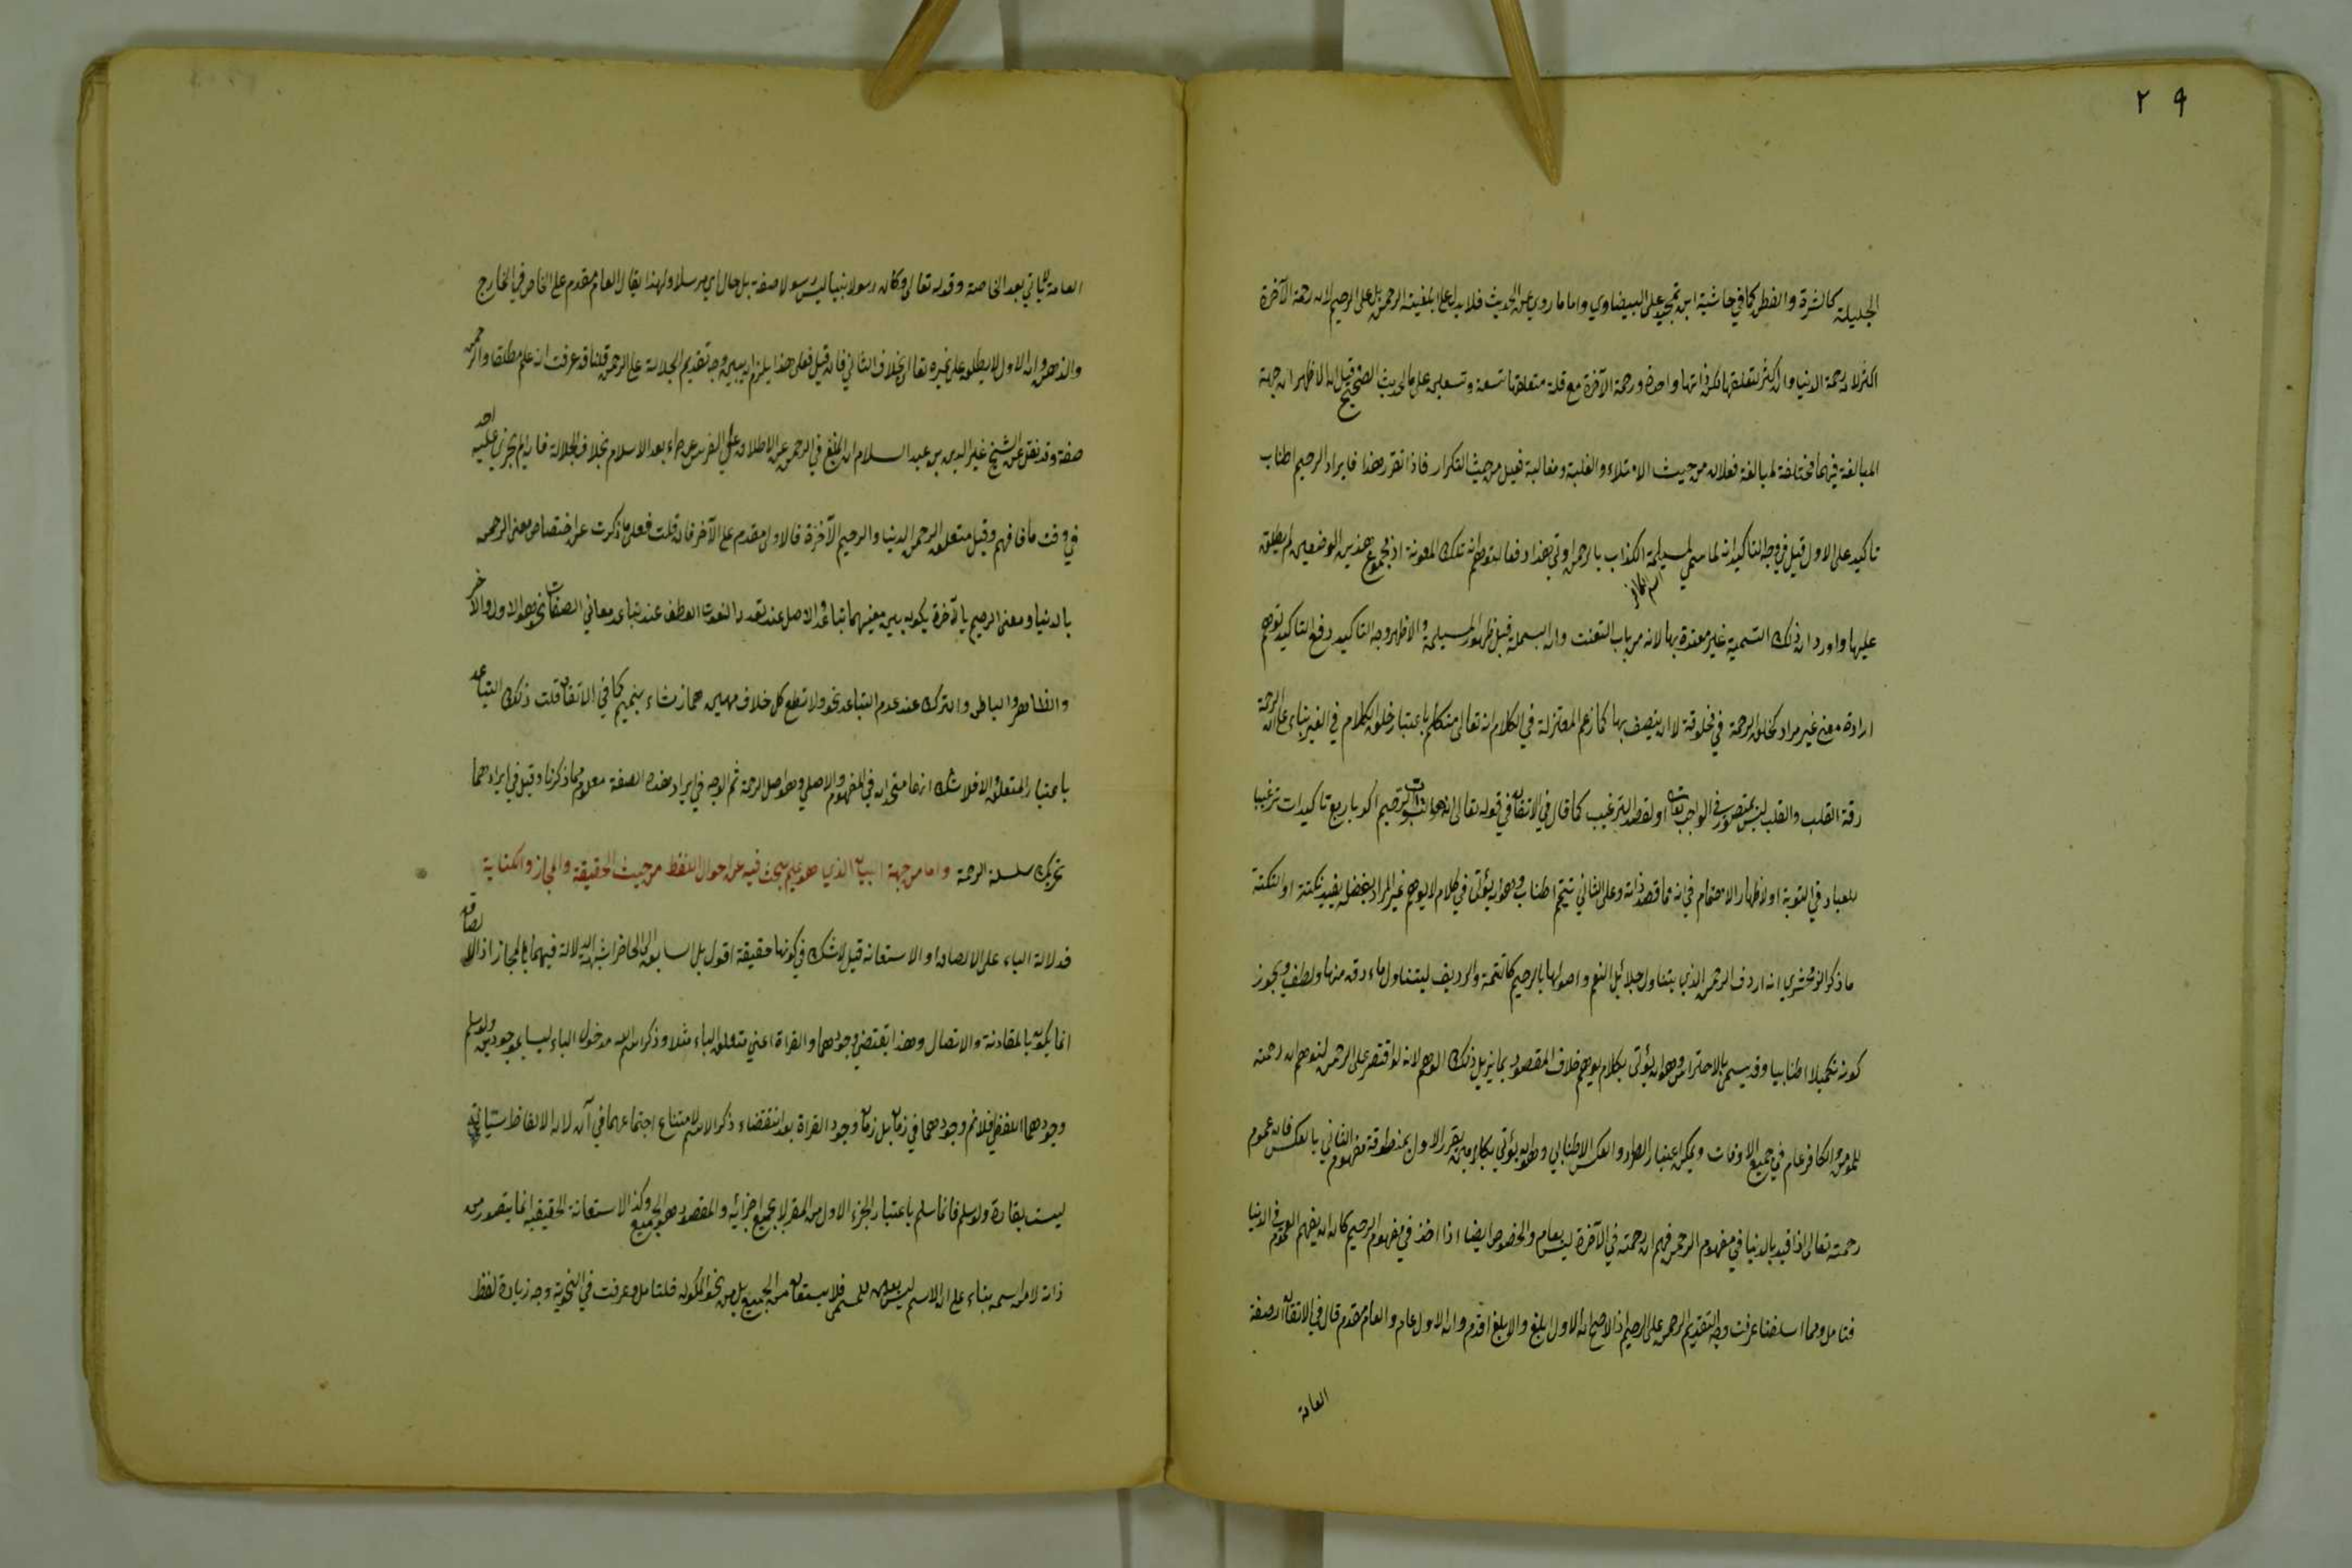 ٢٩
الجليلة كالشرة والفطر كما في حاشية ابن تمجيد على البيضاوي واما ما روي من الحديث فلا يدل على ابلغية الرحمن بل على الرحيم لان رحمة الآخرة
اكثر لان رحمة الدنيا وان كثر متعلقها لكن ذاتها واحدة ورحمة الآخرة مع قلة متعلقها تسعة وتسعين على ما الحديث الصحيح قيل ان الاظهر ان جهة
المبالغة فيهما مختلفة لمبالغة فعلان من حيث الامتلاء والغلبة ومغالبة فعيل من حيث التكرار فاذا تقرر هذا فايراد الرحيم اطناب
تاكيد على الاول قيل في وجه التاكيد انه لما سمي مسيلمة الكذاب بالرحمن اوتي بهذا دفعا لتوهم انه تلك المعونة اذ مجموع هذين الوضعين لم يطلق
عليها واورد ان ذلك التسمية غير معتدة بها لانه من باب التعنت وان البسملة قبل ظهور المسيلمة والاظهر وجه التاكيد دفع التاكيد توهم
ارادة معنى غير مراد كخلق الرحمة في مخلوقة لا ان يتصف بها كما زعم المعتزلة في الكلام انه تعالى متكلم باعتبار خلق الكلام في الغير بناء على ان الرحمة
رقة القلب والقلب ليس بمتصور في الواجب تعالى او لقصد الترغيب كما قال في الاتقان في قوله تعالى انه هو التواب الرحيم اكد باربع تاكيدات ترغيبا
للعباد في التوبة او لاظهار الاهتمام في انه مما قصد ذاته وعلى الثاني تتميم اطناب وهو ان يؤتى في كلام لا يوهم غير المراد بفضلة يفيد نكتة او النكتة
ما ذكر الزمخشري انه اردف الرحمن الذي يتناول جلائل النعم واصولها بالرحيم كالتتمة والرديف ليتناول ما دق منها ولطف ويجوز
كونه تكميلا اطنابيا وقد يسمى بالاحتراس وهو ان يؤتى بكلام يوهم خلاف المقصود بما يزيل ذلك الوهم لانه لو اقتصر على الرحمن لتوهم ان رحمته
للمؤمن والكافر عام في جميع الاوقات ويمكن اعتبار الطرد والعكس الاطنابي وهو ان يؤتى بكلامين يقرر الاول بمنطوقه مفهوم الثاني بالعكس فان عموم
رحمته تعالى اذا قيد بالدنيا في مفهوم الرحمن فهم ان رحمته في الآخرة ليس بعام والخصوص ايضا اذا اخذ في مفهوم الرحيم كان ان يفهم العموم في الدنيا
فتامل ومما اسلفنا عرفت وجه التقديم الرحمن على الرحيم اذ الاصح ان الاول ابلغ والابلغ اقدم وان الاول عام والعام مقدم قال في الاتقان الصفة
العامة
العامة لا ياتي بعد الخاصة وقوله تعالى وكان رسولا نبيا ليس رسولا صفة بل حال اي مرسلا ولهذا يقال العام مقدم على الخاص في الخارج
والذهن وان الاول لا يطلق على غيره تعالى بخلاف الثاني فان قيل فعلى هذا يلزم ان يبين وجه تقديم الجلالة على الرحمن قلنا قد عرفت انه علم مطلقا والرحمن
صفة وقد نقل عن الشيخ عز الدين بن عبد السلام ان المنع في الرحمن عن الاطلاق على الغير بعد الاسلام بخلاف الجلالة فانه لم يجز عليه احد
في وقت ما فافهم وقيل متعلق الرحمن الدنيا والرحيم الآخرة فالاولى مقدم على الآخر فان قلت فعلى ما ذكرت عن اختصاص معنى الرحمن
بالدنيا ومعنى الرحيم بالآخرة يكون بين معنييهما تباعد والاصل عند تعدد النعوت العطف عند تباعد معاني الصفات نحو هو الاول والآخر
والظاهر والباطن والترك عند عدم التباعد نحو ولا تطع كل حلاف مهين هماز مشاء بنميم كما في الاتقان قلت ذلك التباعد
باعتبار المتعلق والا فلا شك انهما متحدان في المفهوم الاصلي وهو اصل الرحمة ثم الوجه في ايراد هذه الصفة معلوم مما ذكرنا وقيل في ايرادهما
تحريك سلسلة الرحمة واما من جهة البيان الذي هو علم يبحث فيه عن احوال اللفظ من حيث الحقيقة والمجاز والكناية
فدلالة الباء على الالصاق او الاستعانة قيل لا شك في كونها حقيقة اقول بل السابق الى الخاطر ان الدلالة فيهما على المجاز اذ الالصاق
انما يكون بالمقارنة والاتصال وهذا يقتضي وجودهما والقراة اعني متعلق الباء مثلا وذكر اسم الله مدخول الباء ليسا بموجودين ولو سلم
وجودهما اللفظي فلا نم وجودهما في زمان بل زمان وجود القراة بعد انقضاء ذكر الاسم لامتناع اجتماعهما في آن لان الالفاظ سيالة
ليست بقارة ولو سلم فانما سلم باعتبار الجزء الاول من المقرو لا بجميع اجزائه والمقصود هو الجميع وكذا الاستعانة الحقيقية انما يتصور من
ذاته لا من اسمه بناء على ان الاسم ليس بعين للمسمى فلا يستعان من الجميع بل من نحو المكون فلتامل وعرفت في النحوية وجه زيادة لفظ